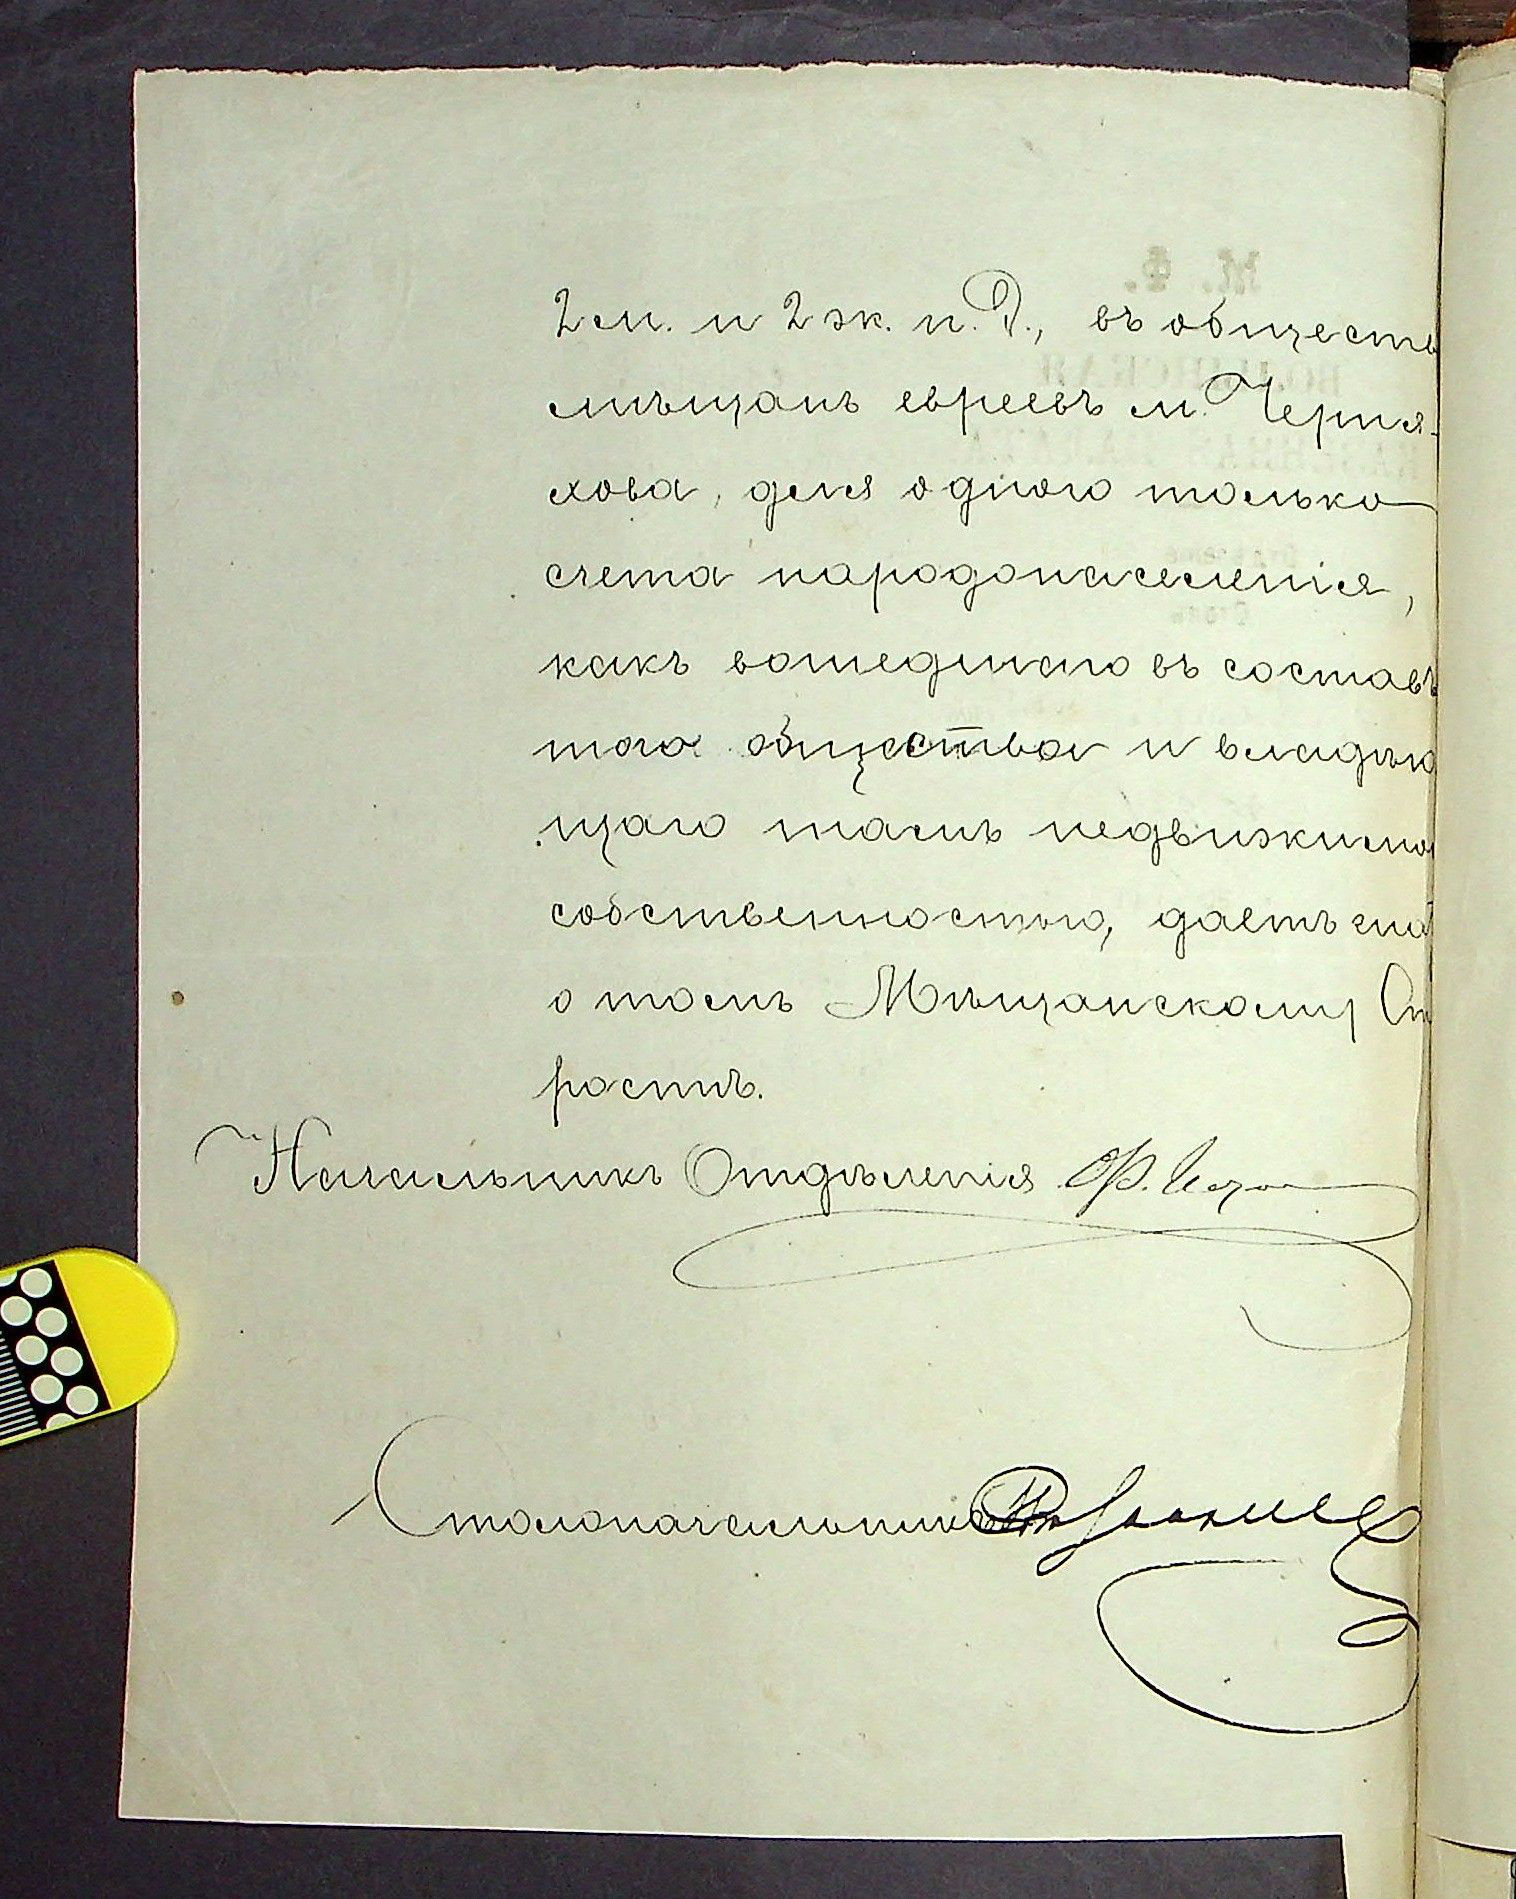 2 м. и 2 ж. п. д., въ обществ
мѣщанъ евреевъ м. Черня-
хова, для одного только
счета народонаселенія,
какъ вошедшаго въ составъ
того общества и владѣю
щаго тамъ недвижимо
собственностью, даетъ зна
о томъ Мѣщанскому Ст
ростѣ.
Начальникъ Отдѣленія Ф.
Столоначальникъ